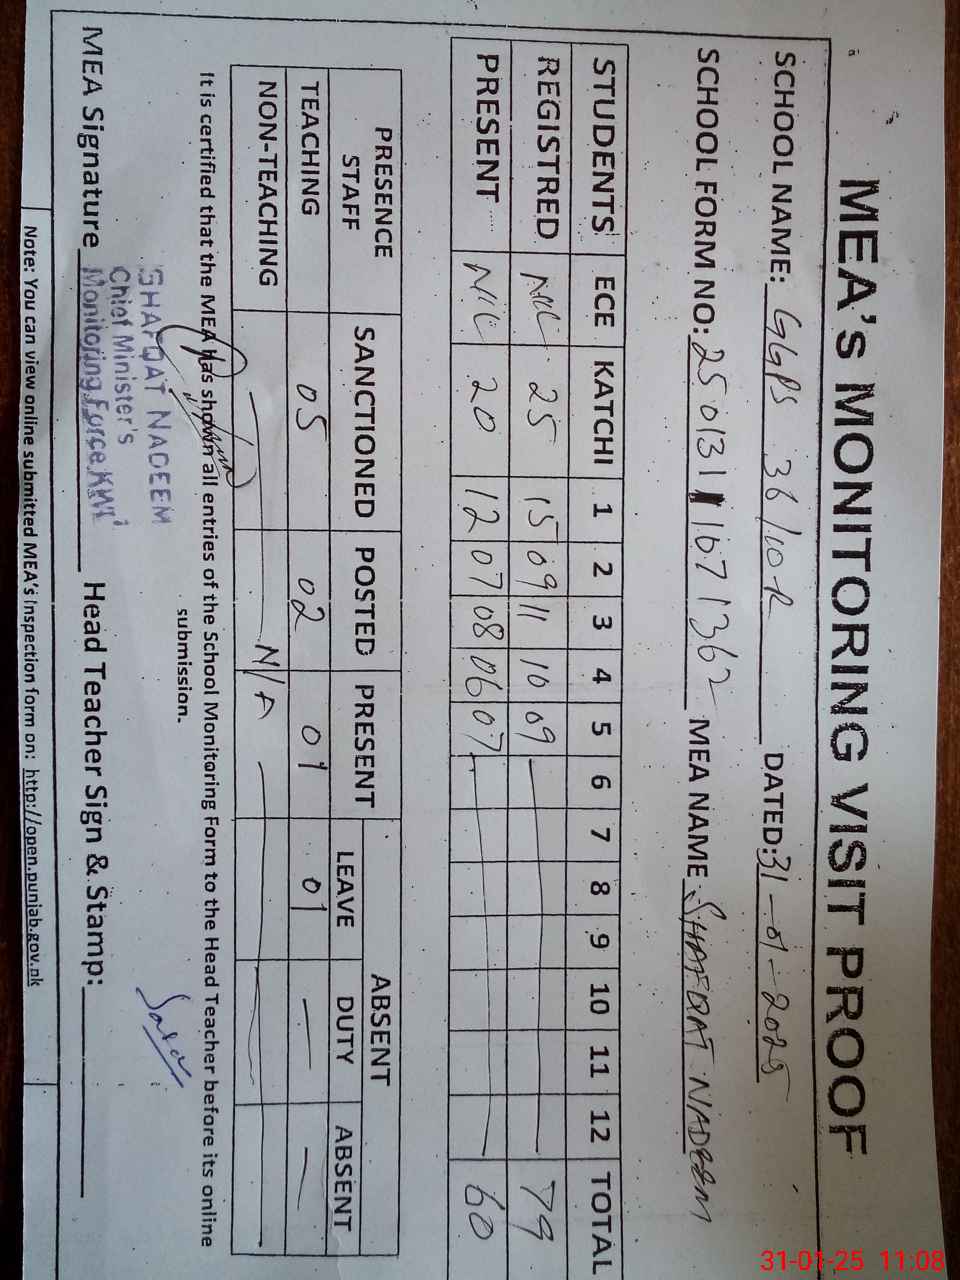 MEA's MONITORING VISIT PROOF
SCHOOL NAME: GGPS 36/10-R DATED: 31-01-2025
SCHOOL FORM NO: 250131 1671362 MEA NAME SHAFQAT NADEEM
STUDENTS ECE KATCHI 1 2 3 4 5 6 7 8 9 10 11 12 TOTAL
REGISTRED NIL 25 15 09 11 10 09 79
PRESENT NIL 20 12 07 08 06 07 60
PRESENCE STAFF SANCTIONED POSTED PRESENT ABSENT
LEAVE DUTY ABSENT
TEACHING 05 02 01 01 — —
NON-TEACHING N/A
It is certified that the MEA has shown all entries of the School Monitoring Form to the Head Teacher before its online
submission.
SHAFQAT NADEEM
Chief Minister's
Monitoring Force KWL
MEA Signature Head Teacher Sign & Stamp:
Note: You can view online submitted MEA's Inspection form on: http://open.punjab.gov.nk
31-01-25 11:08